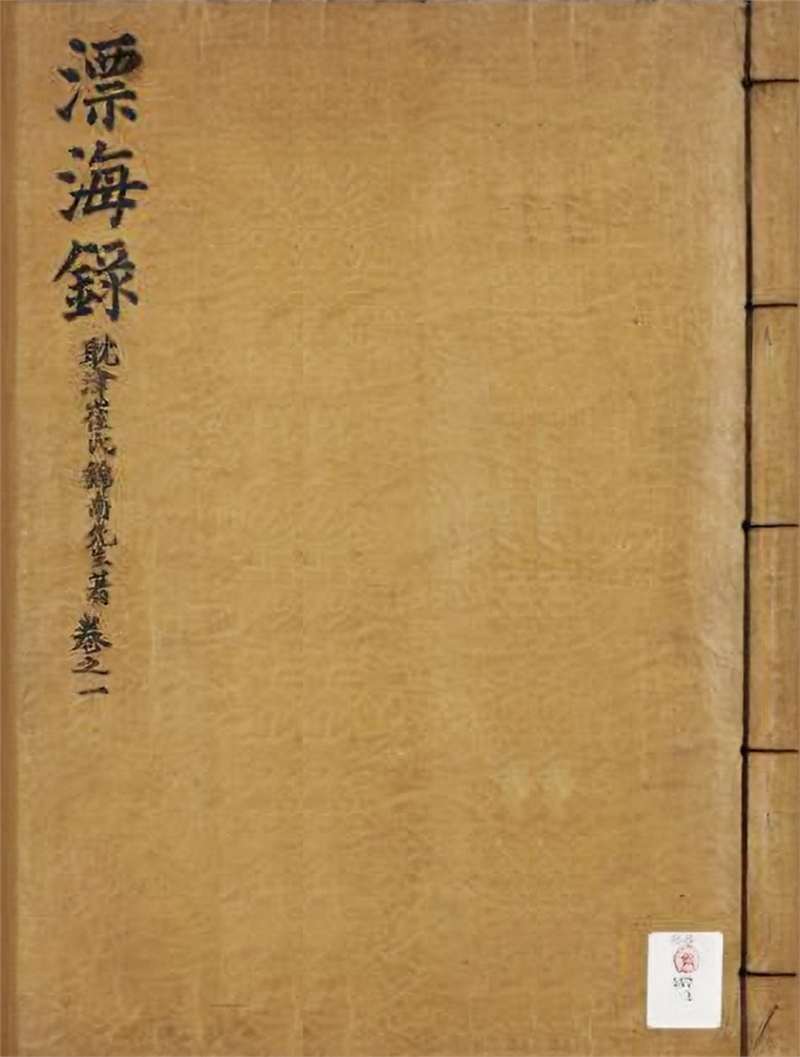 漂海錄 耽津崔氏錦南先生著 卷之一